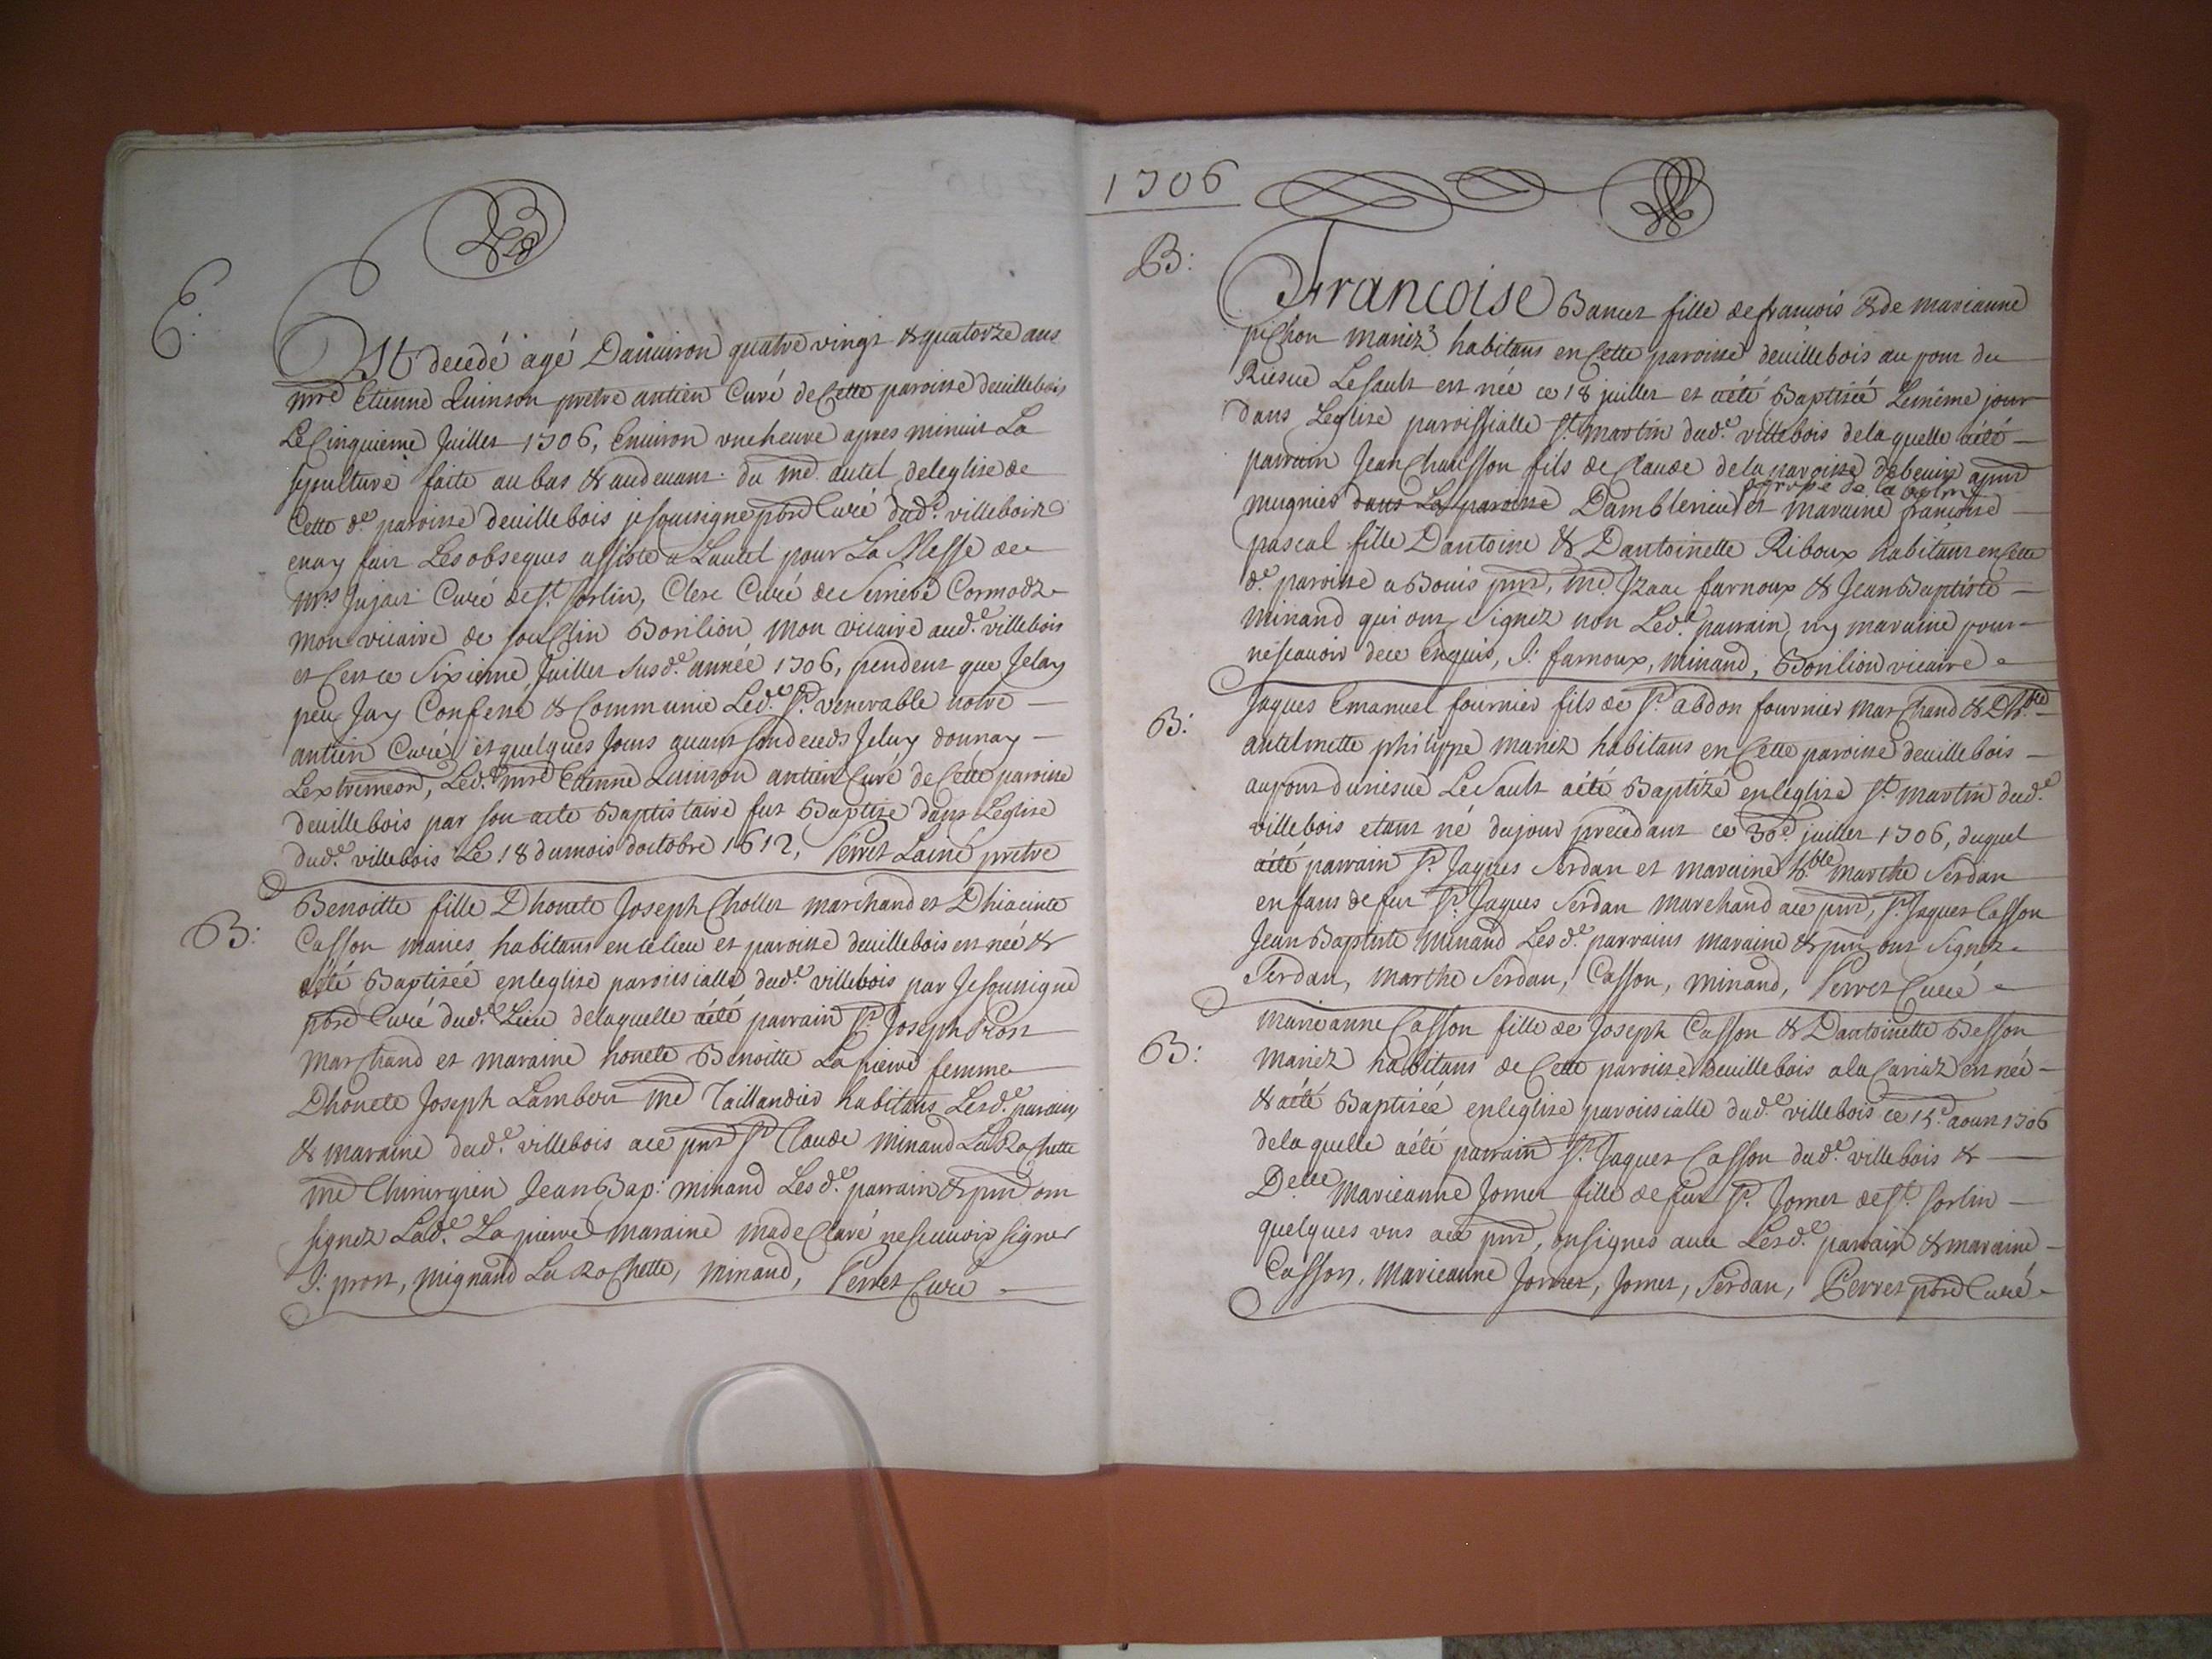 E:
Est decedé agé Danviron quatre vingt & quatorze ans
mre Etienne Quinson pretre antien Curé de Cette paroisse deuillebois
Le Cinquieme Juillet 1706, Environ vne heure apres minuit La
sepulture faite au bas & audeuant du me autel deleglise de
Cette de paroisse deuillebois je sousigne pbre Curé dud. villebois
enay fait Les obseques assisté a Lautel pour La Messe de
Mrs Jujat Curé de st sorlin, Clerc Curé de Serriere Cormodz
mon vicaire de souclin Borilion mon vicaire aud. villebois
et Cest ce Sixieme Juillet susde année 1706, pendent que Jelay
peu Jay Confessé & Communie Led. sr venerable notre
antien Curé, et quelques Jours auant son deceds Jeluy donnay
Lextremeon, Led. mre Etienne Quinson antien Curé de Cette paroisse
deuillebois par son acte Baptistaire fut Baptize dans Leglise
dud. villebois Le 18 dumois doctobre 1612, Perret Lainé pretre
B:
Benoitte fille Dhonete Joseph Chollet marchand et Dhiacinte
Casson maries habitans en ce lieu et paroisse deuillebois est née &
aété Baptisée enleglise paroissialle dud. villebois par Je sousigne
pbre Curé dud. Lieu delaquelle aété parrain sr Joseph Prost
Marchand et maraine honete Benoitte Lapierre femme
Dhonete Joseph Lambert me Taillandier habitans Lesd. parain
& maraine dud. villebois ace pnt sr Claude Minand La Rochette
me Chirurgien Jean Bap: minand Lesd. parrain & pnt ont
signez Lade Lapierre maraine ma declaré nescauoir signer
J: prost, mignand La Rochette, minand, Perret Curé
1706
B:
Francoise Bancet fille de francois & de marianne
pichon mariez habitans en Cette paroisse deuillebois au pont du
Riesue Lesault est née ce 18 juillet et aété Baptisée Lemême jour
dans Leglise paroissialle st martin dud. villebois delaquelle aété
parrain Jean Chausson fils de Claude dela paroisse debenix
mugnier dans La paroisse Damblerieu et maraine francoise
pascal fille Dantoine & Dantoinette Riboux habitans en Cette
de paroisse a Bouis pnt, me Izaac farnoux & Jean Baptiste
minand qui ont Signez non Led. parrain, ny maraine pour
nescauoir dece Enquis, I: farnoux, minand, Borilion vicaire
B:
Jaques Emanuel fournier fils de sr abdon fournier marchand &
antelmette philippe mariez habitans en Cette paroisse deuillebois
au pont duriesue LeSault aété Baptizé enleglise st martin dud.
villebois etant né dujour precedant ce 30e juillet 1706, duquel
aété parrain sr Jaques Serdan et maraine hble marthe Serdan
enfans de feu sr Jaques Serdan marchand ace pnt, sr Jaques Casson
Jean Baptiste minand Lesd. parrains maraine & pnt ont Signez
Serdan, marthe Serdan, Casson, minand, Perret Curé
B:
marieanne Casson fille de Joseph Casson & Dantoinette Besson
mariez habitans de Cette paroisse deuillebois ala Cariaz est née
& aété Baptisée enleglise paroissialle dud. villebois ce 15e aoust 1706
delaquelle aété parrain sr Jaques Casson dud. villebois &
Delle marieanne Jornet fille de feu sr Jornet de st sorlin
quelques vns ace pnt, onsignes auec Lesd. parrain & maraine
Casson, marieanne Jornet, Jornet, Serdan, Perret pbre Curé